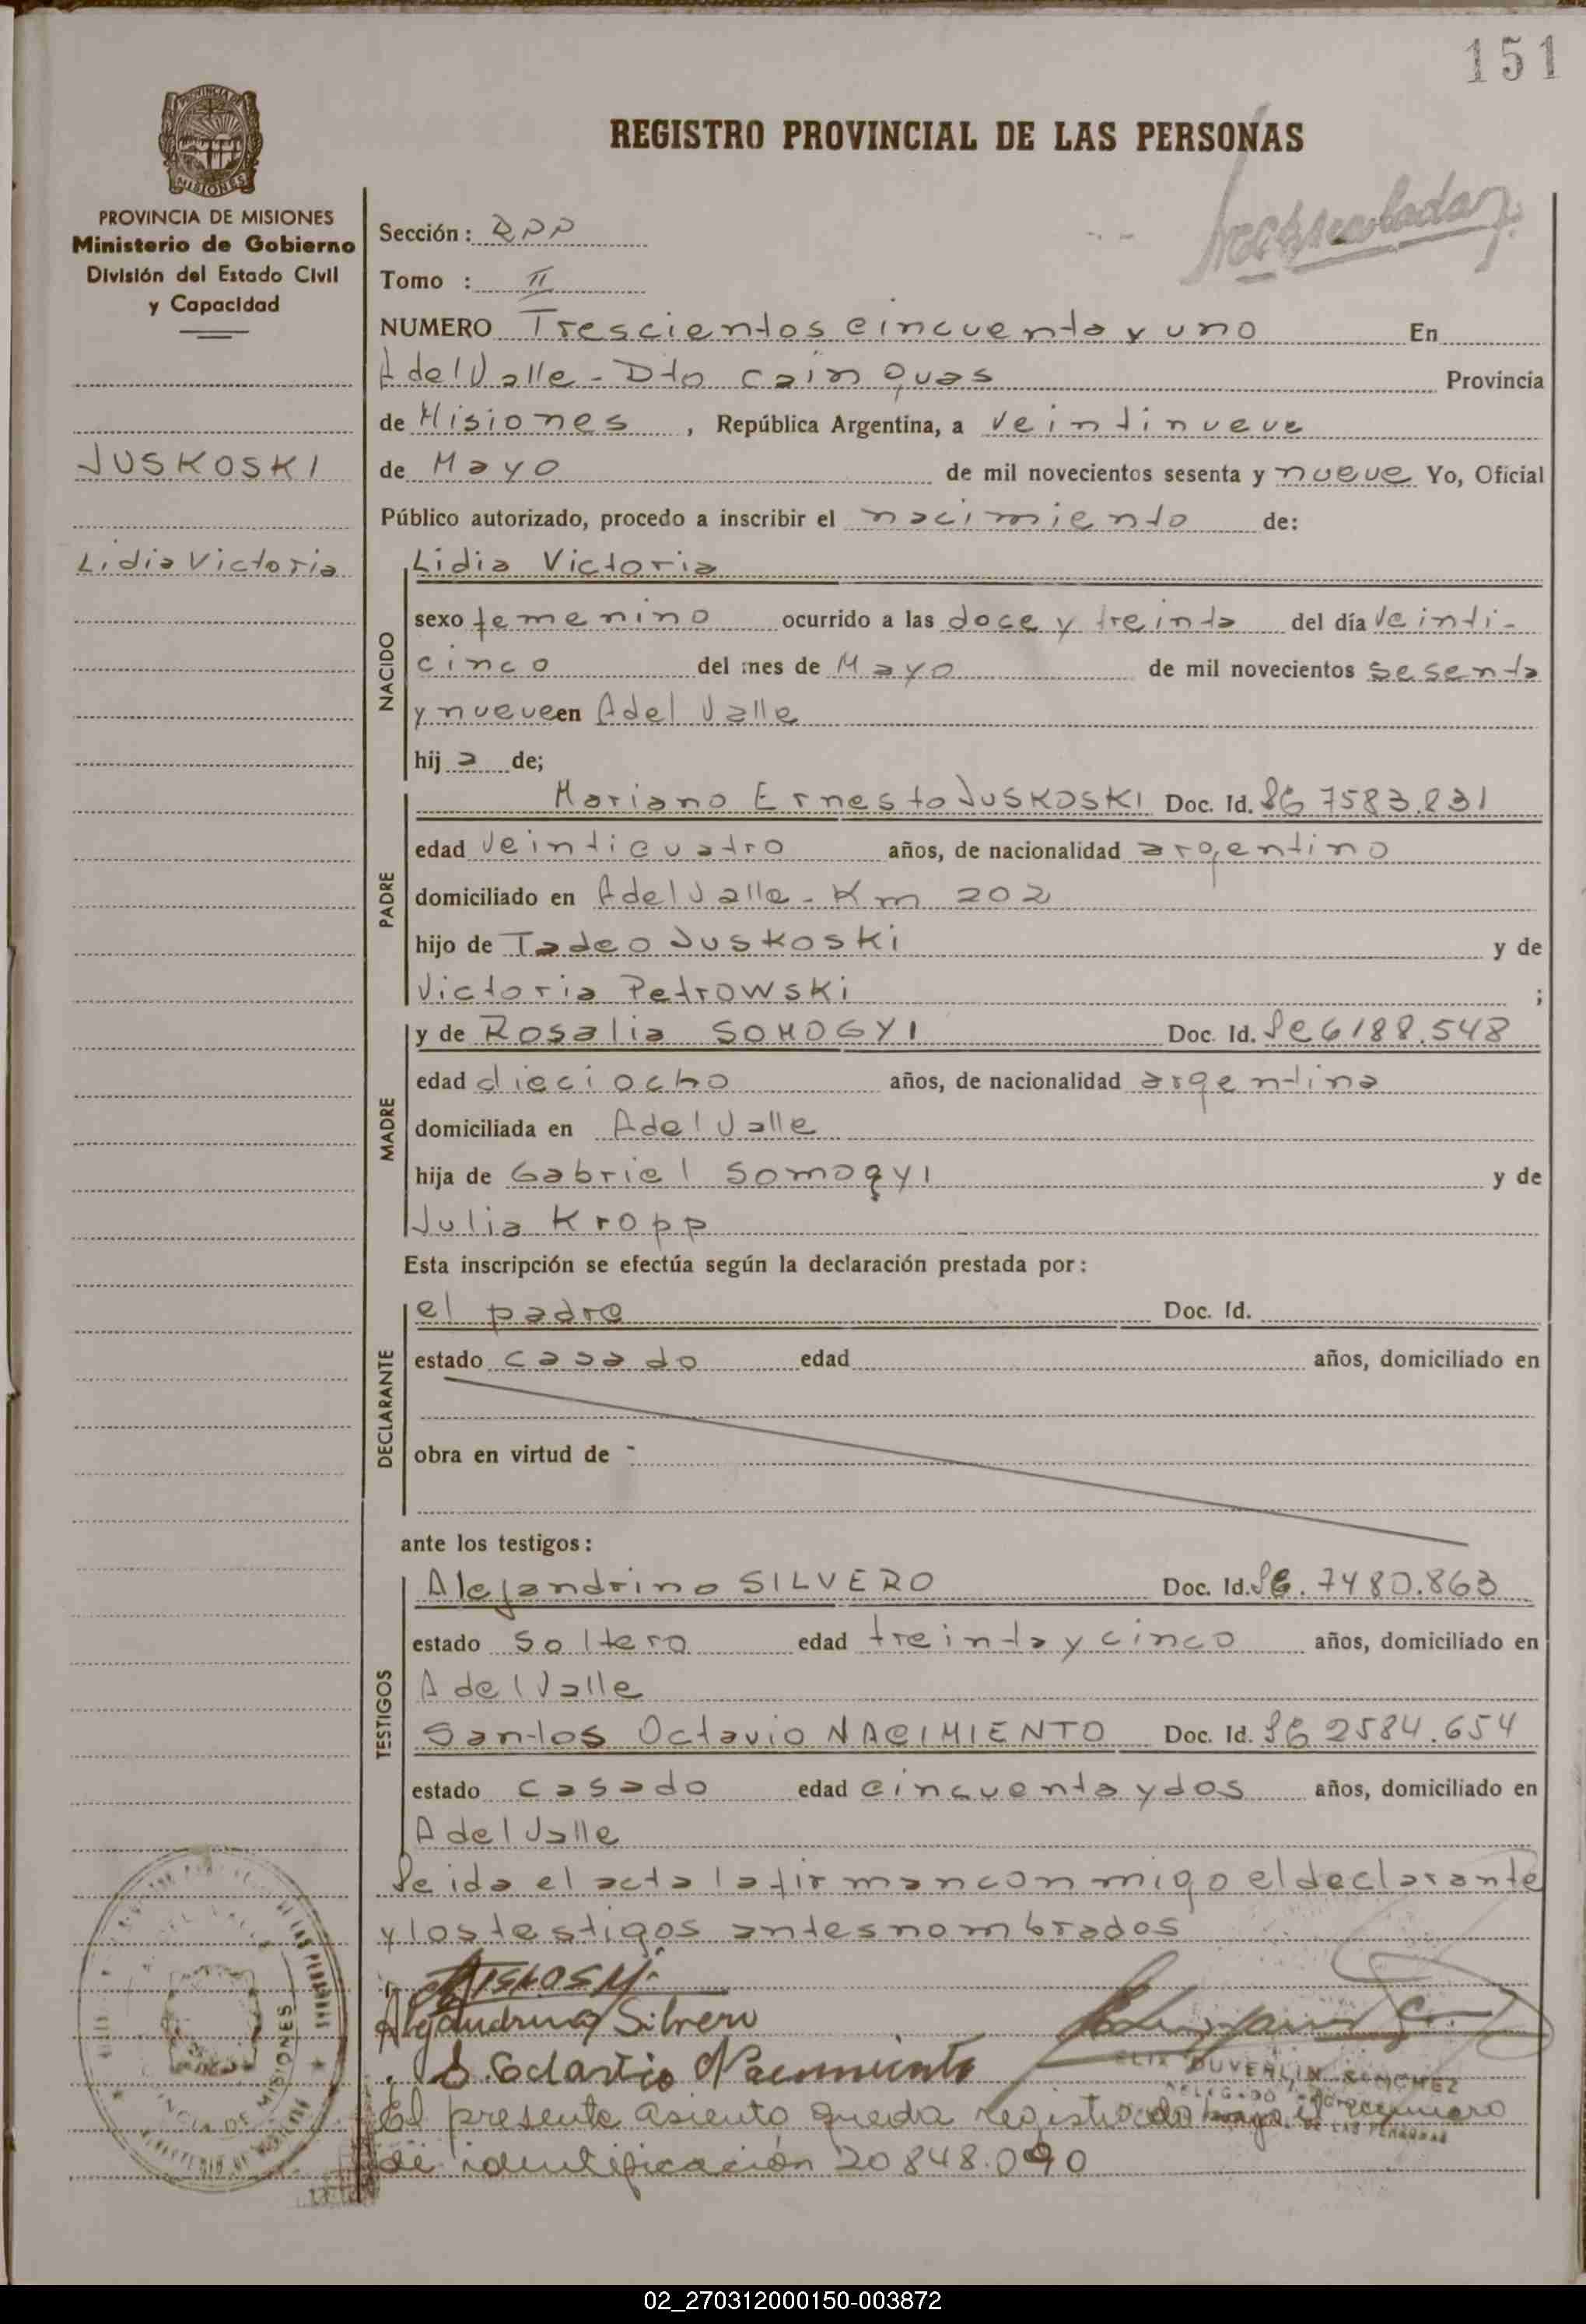 151
REGISTRO PROVINCIAL DE LAS PERSONAS
PROVINCIA DE MISIONES
Ministerio de Gobierno
División del Estado Civil
y Capacidad
JUSKOSKI
Lidia Victoria
Sección:
Tomo : II
NUMERO Trescientos cincuenta y uno En
A del Valle - Dto Cainguas Provincia
de Misiones, República Argentina, a veintinueve
de Mayo de mil novecientos sesenta y nueve Yo, Oficial
Público autorizado, procedo a inscribir el nacimiento de:
NACIDO
Lidia Victoria
sexo femenino ocurrido a las doce y treinta del día veinti-
cinco del mes de Mayo de mil novecientos sesenta
y nueve en A del Valle
hij a de;
PADRE
Mariano Ernesto JUSKOSKI Doc. Id. 7583.831
edad veinticuatro años, de nacionalidad argentino
domiciliado en A del Valle - Km 202
hijo de Tadeo Juskoski y de
Victoria Petrowski ;
MADRE
y de Rosalia SOMOGYI Doc. Id. 6188.548
edad dieciocho años, de nacionalidad argentina
domiciliada en A del Valle
hija de Gabriel Somogyi y de
Julia Kropp
Esta inscripción se efectúa según la declaración prestada por:
DECLARANTE
el padre Doc. Id.
estado casado edad años, domiciliado en
obra en virtud de -
ante los testigos:
TESTIGOS
Alejandrino SILVERO Doc. Id. 7480.863
estado soltero edad treinta y cinco años, domiciliado en
A del Valle
Santos Octavio NACIMIENTO Doc. Id. 2584.654
estado casado edad cincuenta y dos años, domiciliado en
A del Valle
Leida el acta la firman conmigo el declarante
y los testigos antes nombrados
Alejandrino Silvero
Nacimiento
DUVERLIN SANCHEZ
DELEGADO
DE LAS PERSONAS
El presente asiento queda registrado bajo el número
de identificación 20848.090
02_270312000150-003872